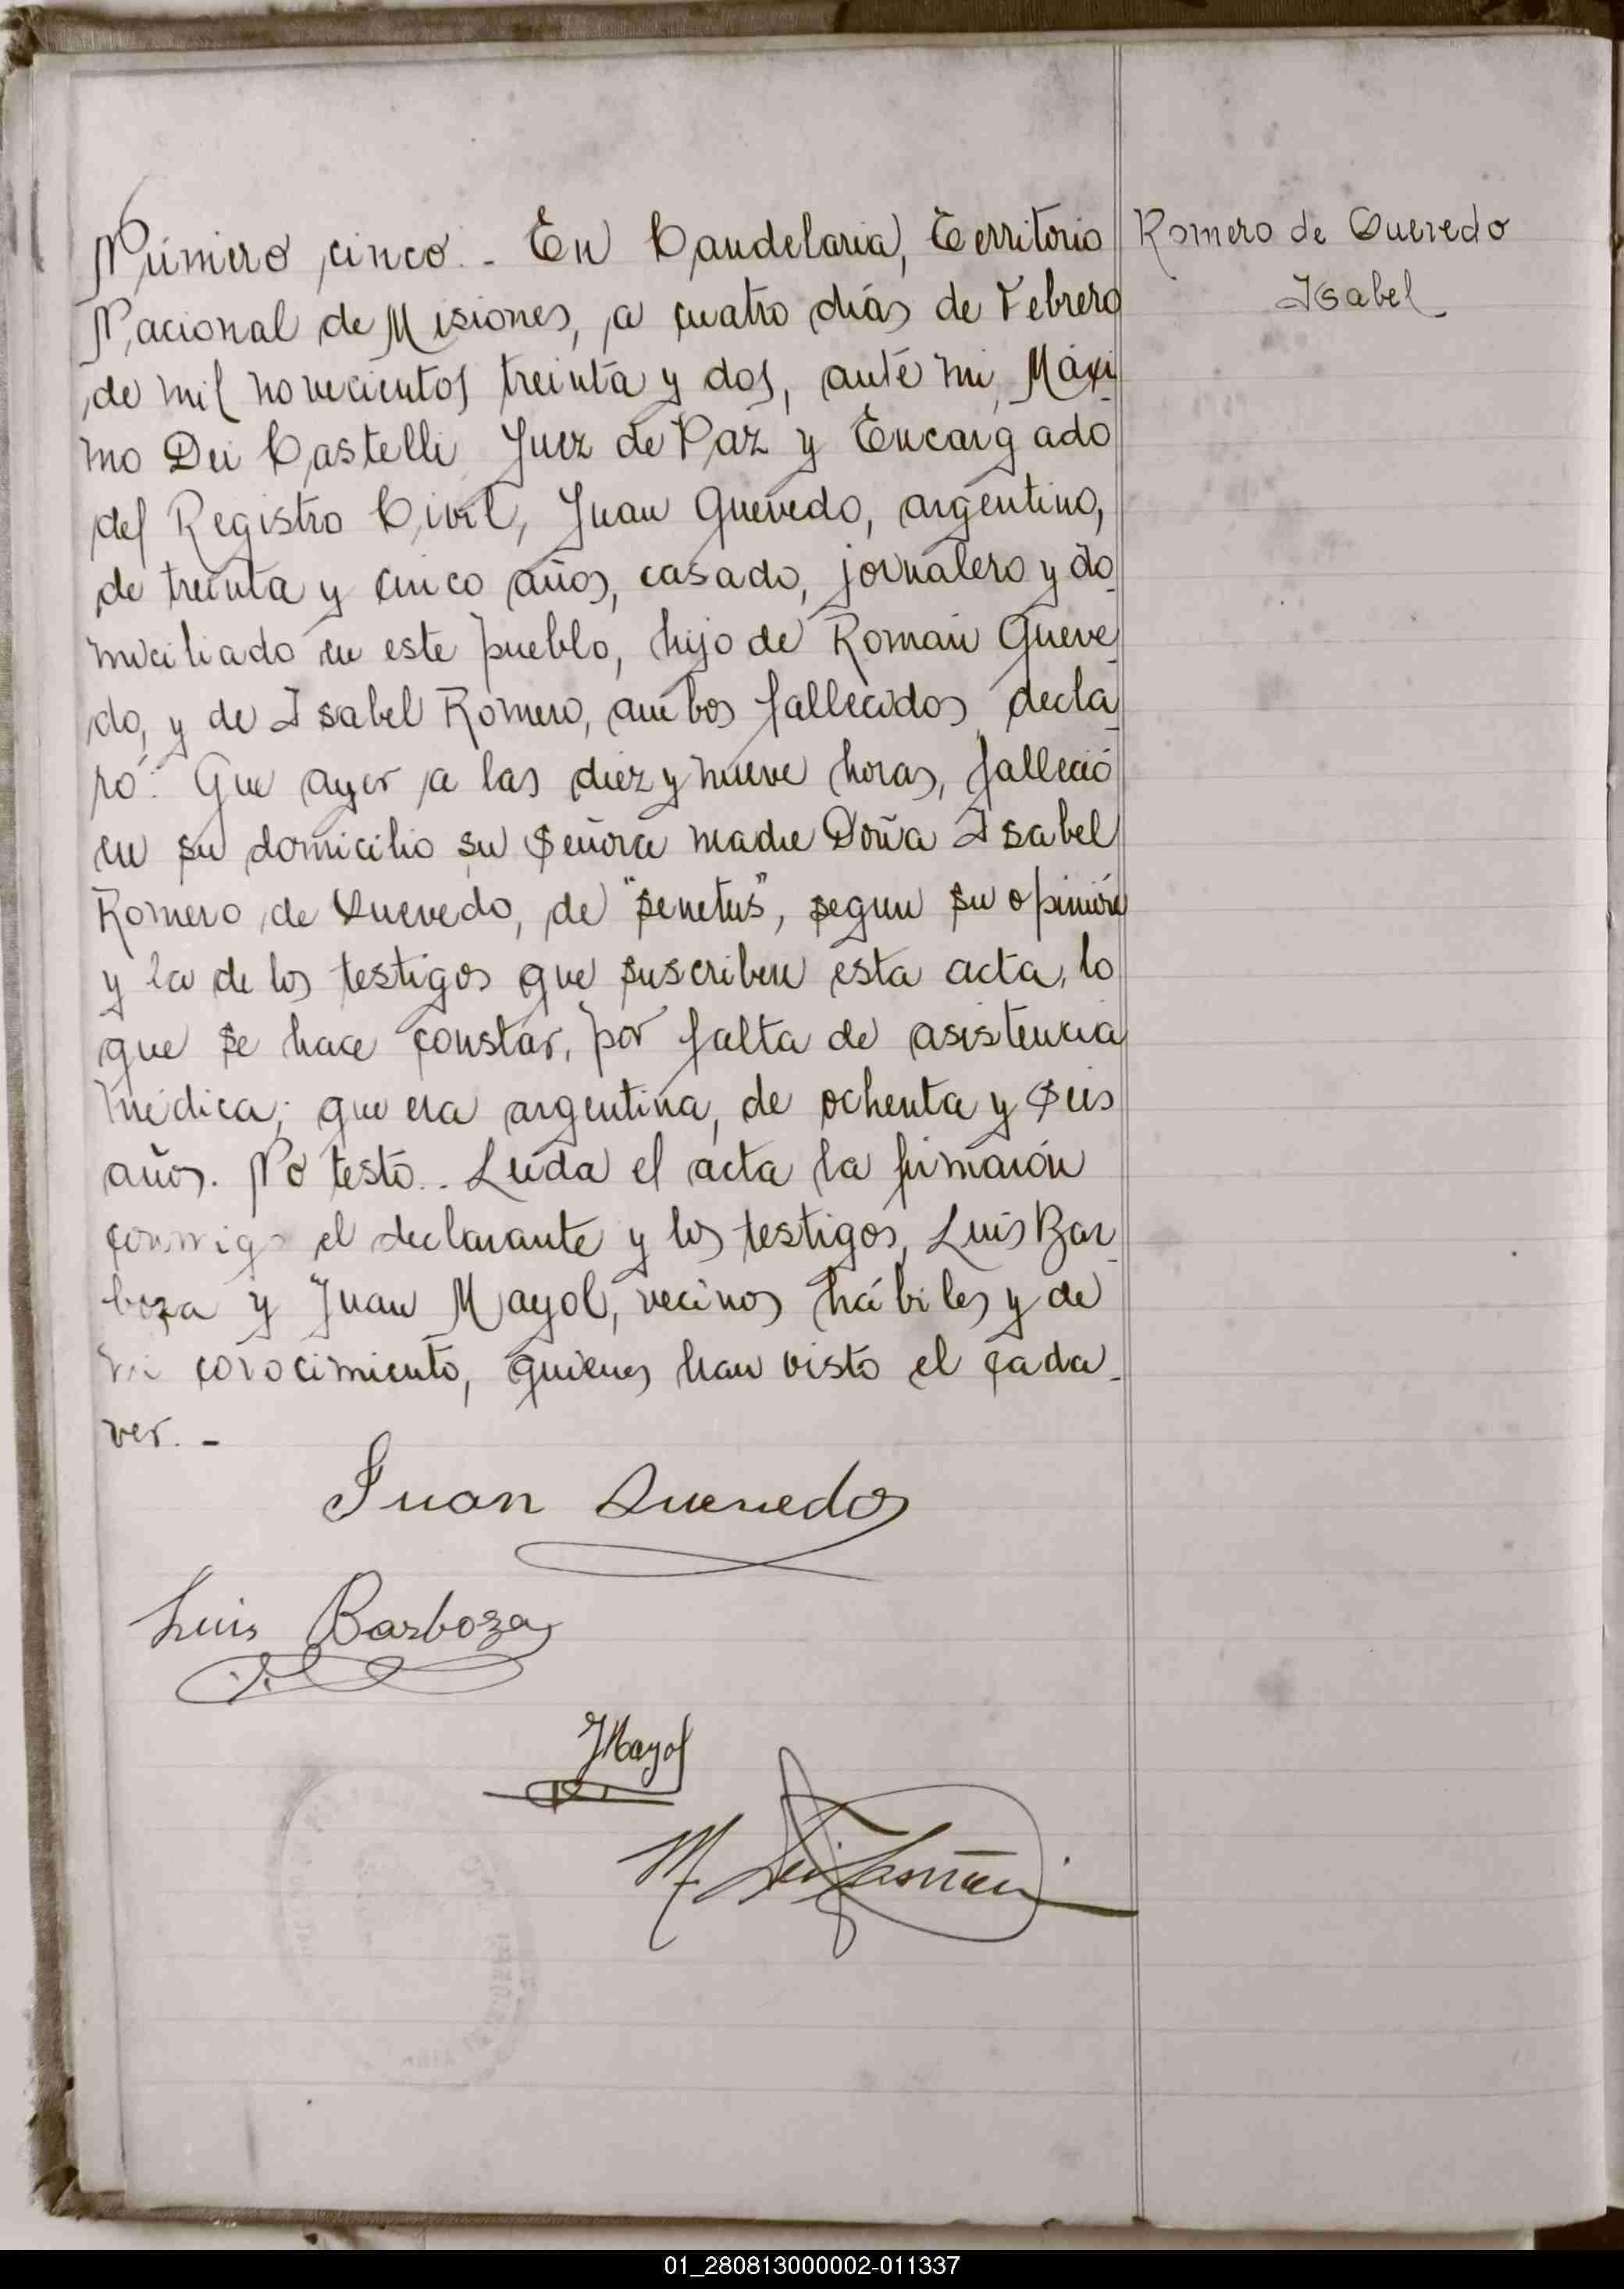 Número cinco. - En Candelaria, Territorio
Nacional de Misiones, a cuatro dias de Febrero
de mil novecientos treinta y dos, ante mi, Máxi-
mo Dei Castelli Juez de Paz y Encargado
del Registro Civil, Juan Quevedo, argentino,
de treinta y cinco años, casado, jornalero y do-
miciliado en este pueblo, hijo de Roman Queve-
do, y de Isabel Romero, ambos fallecidos, decla-
ró: Que ayer a las diez y nueve horas, falleció
en su domicilio su señora madre Doña Isabel
Romero de Quevedo, de "senetus", segun su opinión
y la de los testigos que suscriben esta acta, lo
que se hace constar, por falta de asistencia
médica; que era argentina, de ochenta y seis
años. No testó. - Leida el acta la firmaron
conmigo el declarante y los testigos, Luis Bar-
boza y Juan Mayol, vecinos hábiles y de
mi conocimiento, quienes han visto el cada-
ver. -
Juan Quevedo
Luis Barboza
JMayol
M. Dei Castelli
Romero de Quevedo
Isabel
01_280813000002-011337